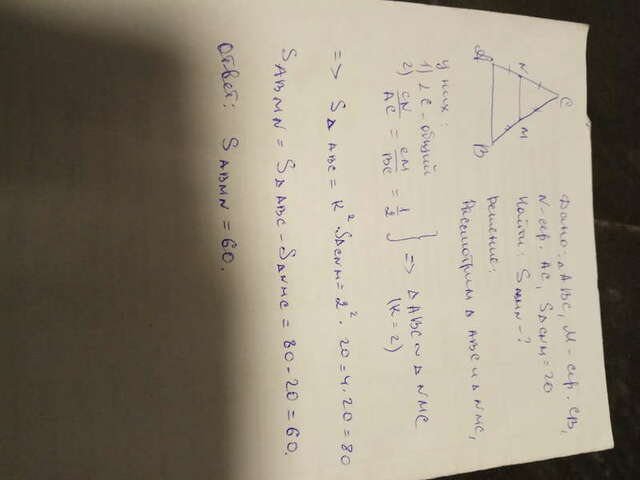 Дано: △ABC, M - сер. CB,
N - сер. AC, S△CNM = 20
Найти: SABMN - ?
Решение:
Рассмотрим △ ABC и △ NMC,
C
N
M
A
B
У них:
1) ∠C - общий
2) CN/AC = CM/BC = 1/2 } => △ ABC ~ △ NMC
(k = 2)
=> S△ ABC = k² · S△CNM = 2² · 20 = 4 · 20 = 80
SABMN = S△ABC - S△NMC = 80 - 20 = 60.
Ответ: SABMN = 60.